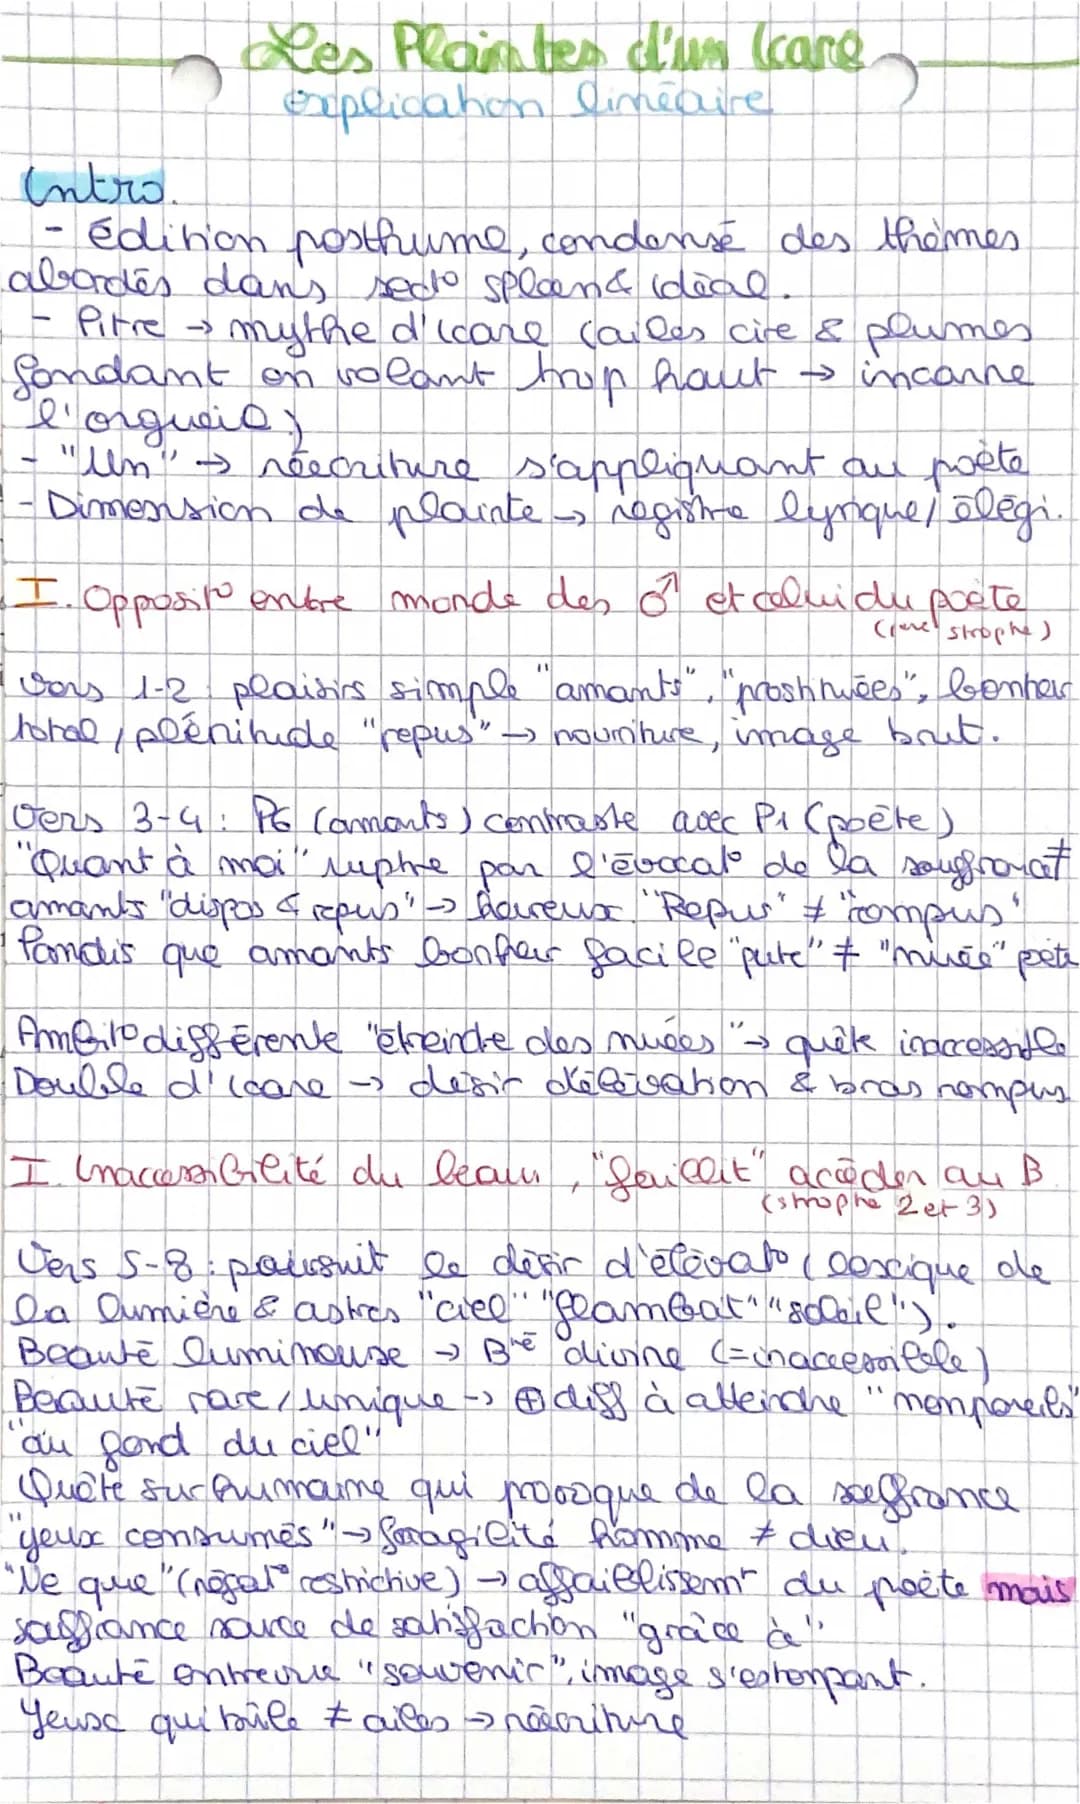 Les Plaintes d'un Icare
explication linéaire
Intro.
- édition posthume, condensé des thèmes
abordés dans sect° spleen & idéal.
- Titre → mythe d'Icare (ailes cire & plumes
fondant en volant trop haut → incarne
l'orgueil)
- "Un" → réécriture s'appliquant au poète
- Dimension de plainte → registre lyrique/élégi.
I. Opposit° entre monde des ♂ et celui du poète
(1ère strophe)
Vers 1-2 : plaisirs simple "amants", "prostituées", bonheur
total / plénitude "repus" → nourriture, image brut.
Vers 3-4 : P6 (amants) contraste avec P1 (poète)
"Quant à moi" rupture par l'évocat° de la souffrance
amants "dispos & repus" → heureux. "Repus" ≠ "rompus"
Tandis que amants bonheur facile "pute" ≠ "nuée" poète
Ambit° différente "étreindre des nuées" → quête inaccessible
Double d'Icare → désir d'élévation & bras rompus
I. Inaccessibilité du beau, "faillit" accéder au B
(strophe 2 et 3)
Vers 5-8 : poursuit le désir d'élévat° (lexique de
la lumière & astres "ciel" "flambat" "soleil").
Beauté lumineuse → Bté divine (=inaccessible)
Beauté rare/unique → ⊕ diff à atteindre "nonpareils"
"au fond du ciel"
Quête surhumaine qui provoque de la souffrance
"yeux consumés" → fragilité homme ≠ dieu.
"Ne que" (négat° restrictive) → affaiblissemt du poète mais
souffrance source de satisfaction "grâce à"
Beauté entrevue "souvenir", image s'estompant.
Yeux qui brûle ≠ ailes → réécriture